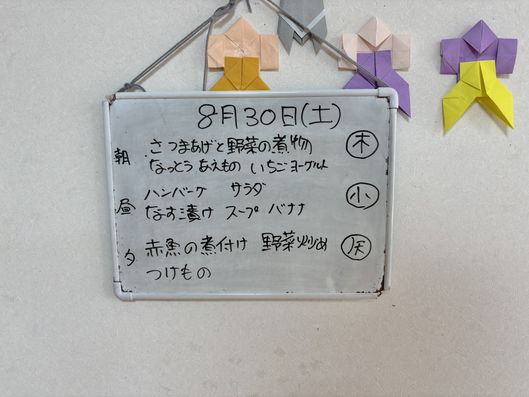 8月30日(土)
朝 さつまあげと野菜の煮物 木
なっとう あえもの いちごヨーグルト
昼 ハンバーグ サラダ 小
なす漬け スープ バナナ
夕 赤魚の煮付け 野菜炒め
つけもの